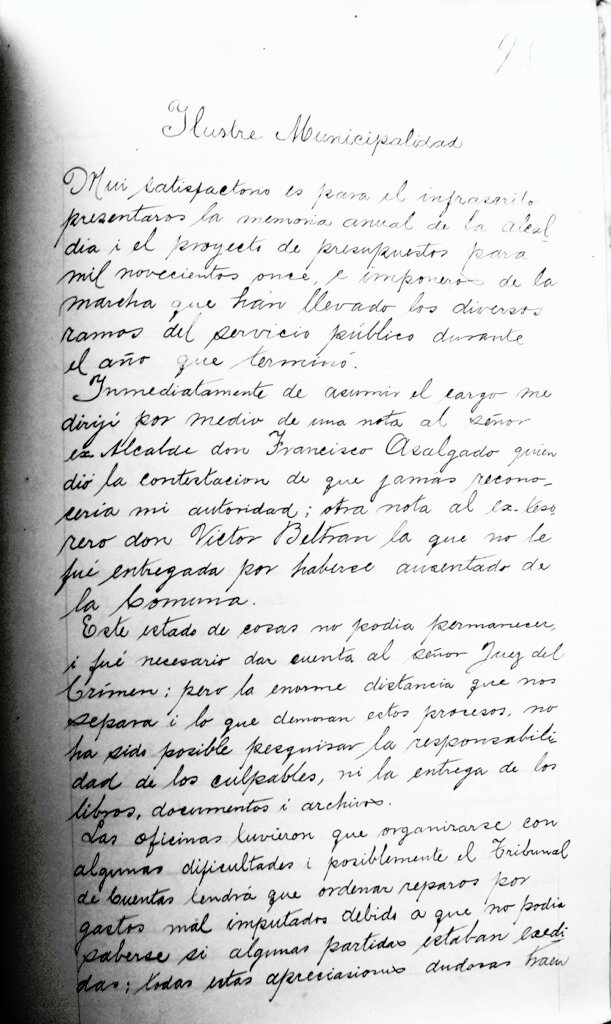 Ilustre Municipalidad
Mui satisfactorio es para el infrascrito
presentaros la memoria anual de la alcal
dia i el proyecto de presupuestos para
mil novecientos once, e imponeros de la
marcha que han llevado los diversos
ramos del servicio público durante
el año que terminó.
Inmediatamente de asumir el cargo me
dirijí por medio de una nota al señor
ex-Alcalde don Francisco Asalgado quien
dió la contestacion de que jamas recono-
ceria mi autoridad; otra nota al ex-teso
rero don Victor Beltran la que no le
fué entregada por haberse ausentado de
la Comuna.
Este estado de cosas no podia permanecer,
i fué necesario dar cuenta al señor Juez del
Crímen; pero la enorme distancia que nos
separa i lo que demoran estos procesos, no
ha sido posible pesquisar la responsabili
dad de los culpables, ni la entrega de los
libros, documentos i archivos.
Las oficinas tuvieron que organizarse con
algunas dificultades i posiblemente el Tribunal
de Cuentas tendrá que ordenar reparos por
gastos mal imputados debido a que no podia
saberse si algunas partidas estaban exedi
das; todas estas apreciasiones dudosas traen